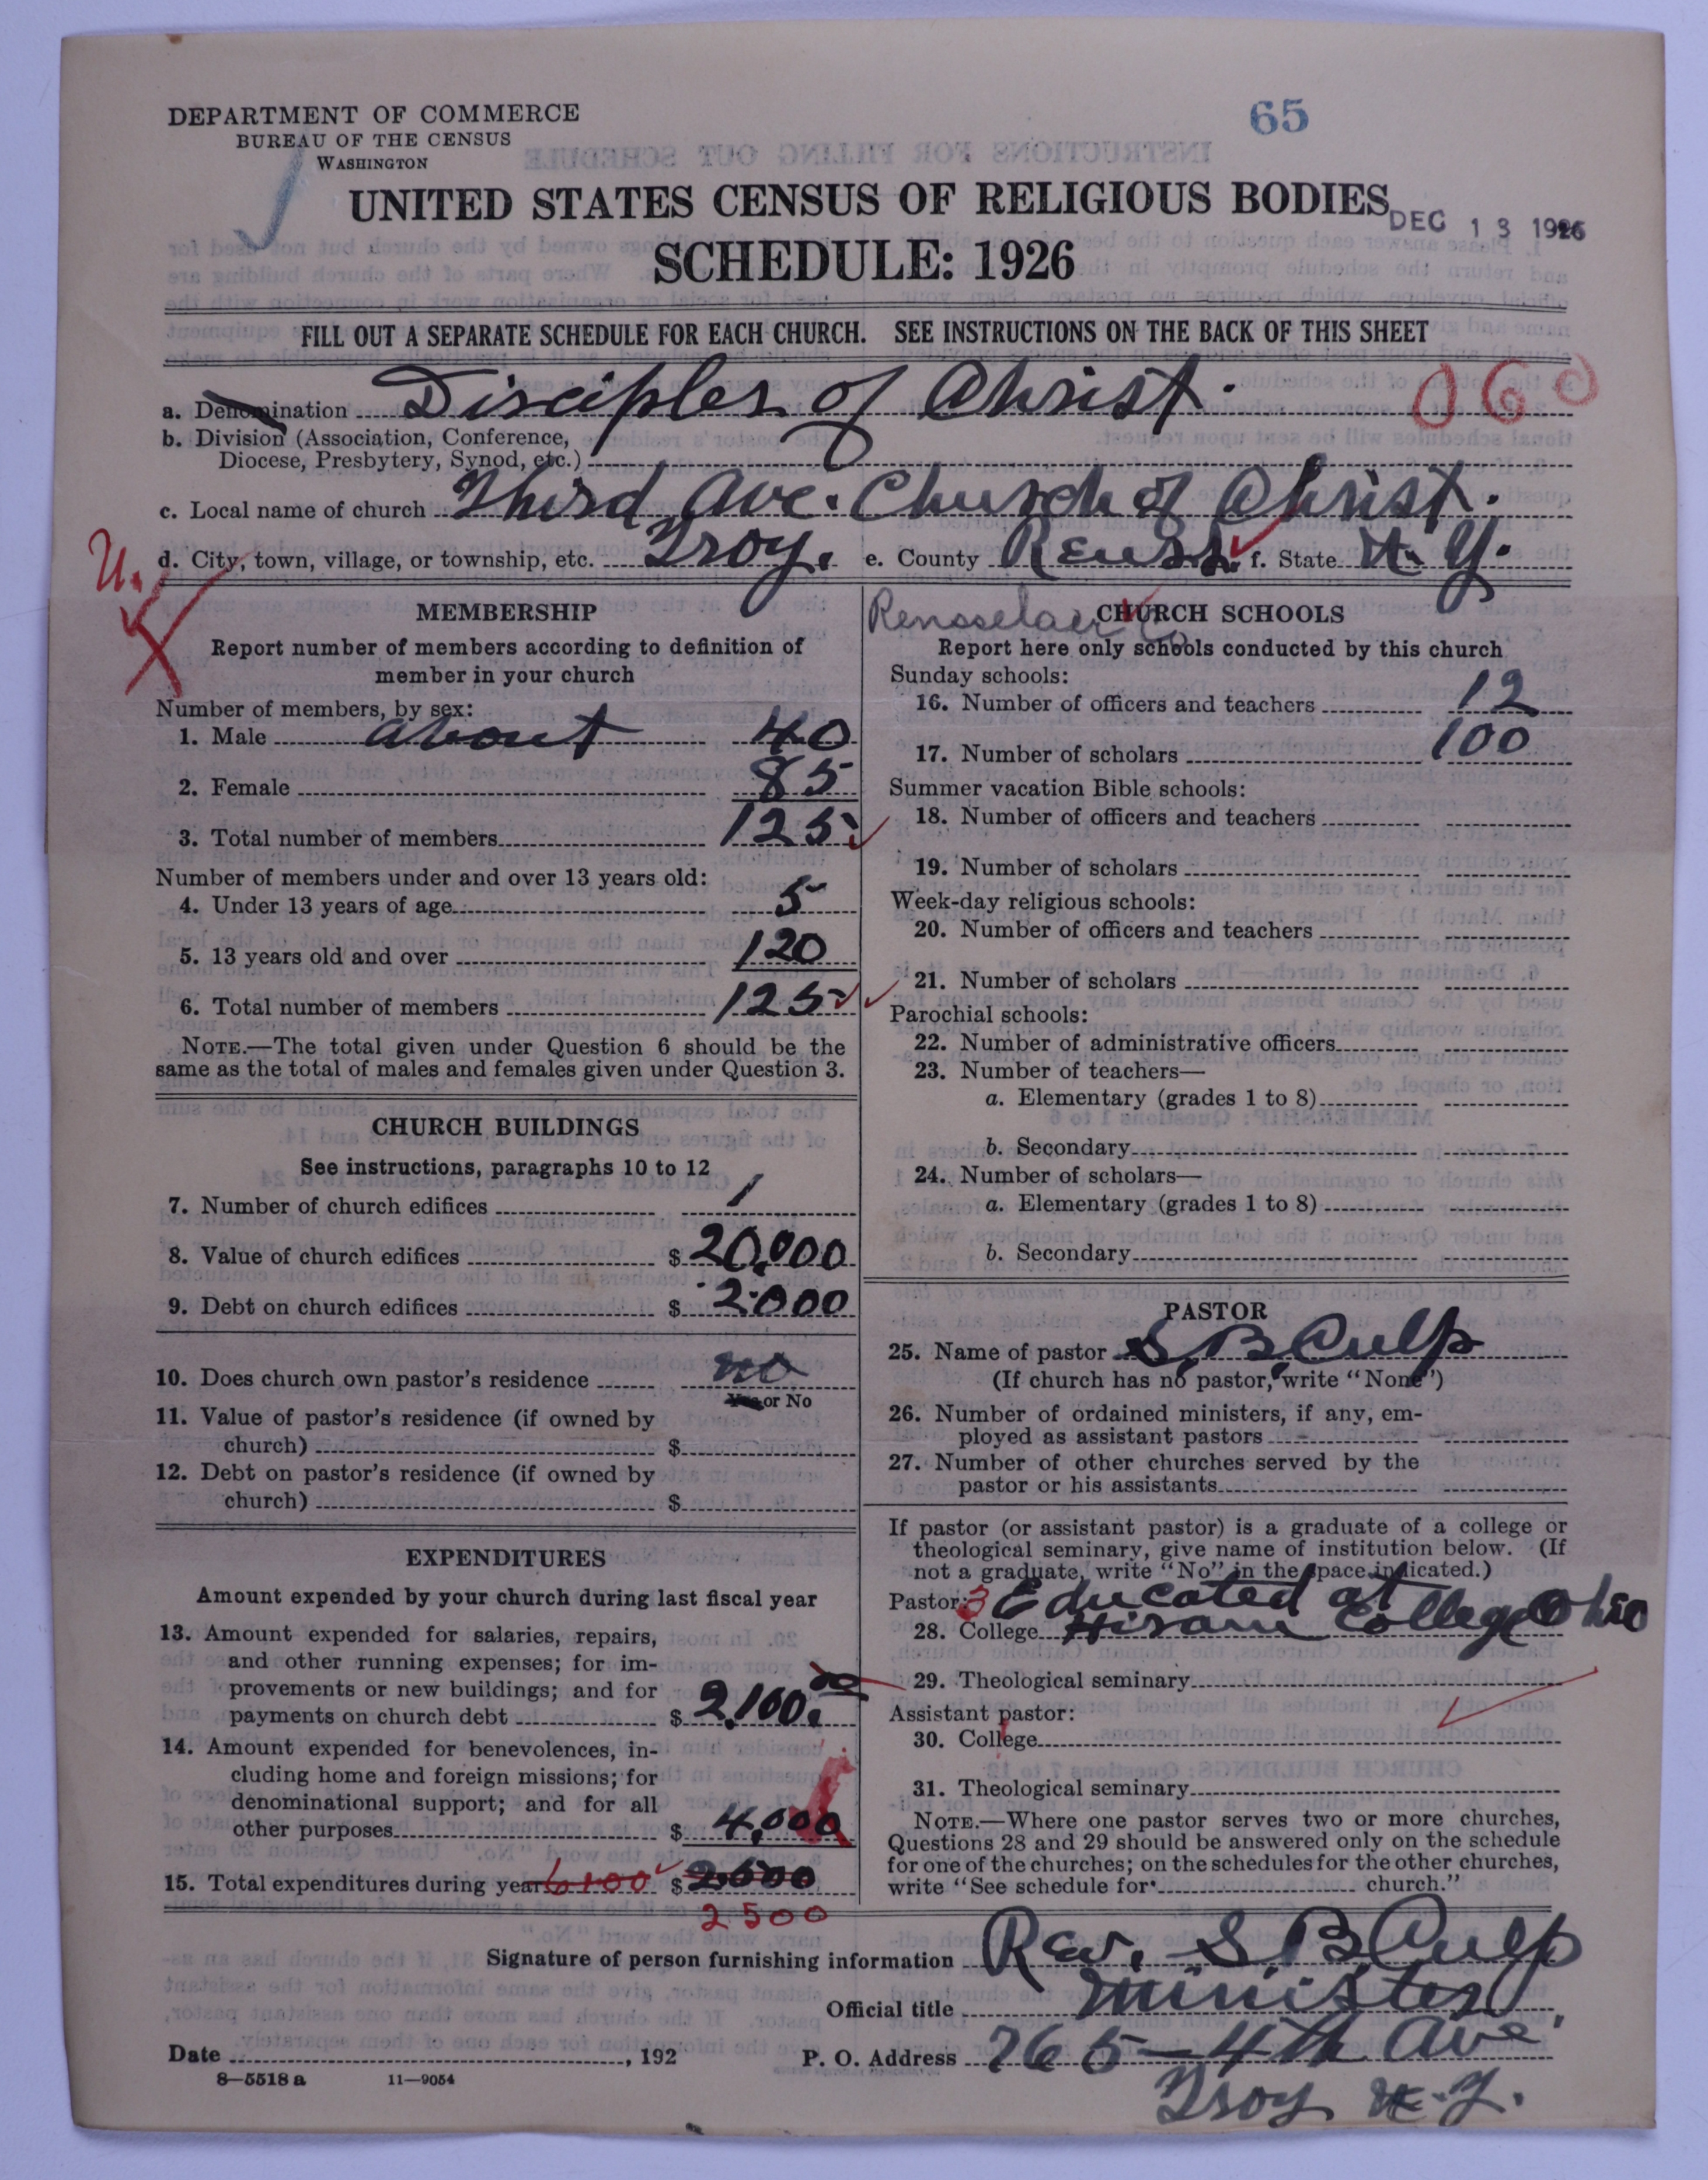 DEPARTMENT OF COMMERCE
BUREAU OF THE CENSUS
WASHINGTON
65
UNITED STATES CENSUS OF RELIGIOUS BODIES
DEC 13 1926
SCHEDULE: 1926
FILL OUT A SEPARATE SCHEDULE FOR EACH CHURCH. SEE INSTRUCTIONS ON THE BACK OF THIS SHEET
a. Denomination Disciples of Christ. 060
b. Division (Association, Conference,
Diocese, Presbytery, Synod, etc.)
c. Local name of church Third Ave. Church of Christ.
U. d. City, town, village, or township, etc. Troy. e. County Renss. f. State N. Y.
Rensselaer Co
MEMBERSHIP
Report number of members according to definition of
member in your church
Number of members, by sex:
1. Male about 40
2. Female 85
3. Total number of members 125
Number of members under and over 13 years old:
4. Under 13 years of age 5
5. 13 years old and over 120
6. Total number of members 125
NOTE.—The total given under Question 6 should be the
same as the total of males and females given under Question 3.
CHURCH BUILDINGS
See instructions, paragraphs 10 to 12
7. Number of church edifices 1
8. Value of church edifices $ 20,000
9. Debt on church edifices $ 2000
10. Does church own pastor's residence no
Yes or No
11. Value of pastor's residence (if owned by
church) $
12. Debt on pastor's residence (if owned by
church) $
EXPENDITURES
Amount expended by your church during last fiscal year
13. Amount expended for salaries, repairs,
and other running expenses; for im-
provements or new buildings; and for
payments on church debt $ 2,100.00
14. Amount expended for benevolences, in-
cluding home and foreign missions; for
denominational support; and for all
other purposes $ 4,000
15. Total expenditures during year 6100 $ 2500
2500
CHURCH SCHOOLS
Report here only schools conducted by this church
Sunday schools:
16. Number of officers and teachers 12
17. Number of scholars 100
Summer vacation Bible schools:
18. Number of officers and teachers
19. Number of scholars
Week-day religious schools:
20. Number of officers and teachers
21. Number of scholars
Parochial schools:
22. Number of administrative officers
23. Number of teachers—
a. Elementary (grades 1 to 8)
b. Secondary
24. Number of scholars—
a. Elementary (grades 1 to 8)
b. Secondary
PASTOR
25. Name of pastor S. B. Culp
(If church has no pastor, write "None")
26. Number of ordained ministers, if any, em-
ployed as assistant pastors
27. Number of other churches served by the
pastor or his assistants
If pastor (or assistant pastor) is a graduate of a college or
theological seminary, give name of institution below. (If
not a graduate, write "No" in the space indicated.)
Pastor: 3 Educated at
28. College Hiram College Ohio
29. Theological seminary
Assistant pastor:
30. College
31. Theological seminary
NOTE.—Where one pastor serves two or more churches,
Questions 28 and 29 should be answered only on the schedule
for one of the churches; on the schedules for the other churches,
write "See schedule for church."
Signature of person furnishing information Rev. S. B. Culp
Official title Minister
Date , 192 P. O. Address 765-4th Ave.
8—5518 a 11—9054
Troy N.Y.